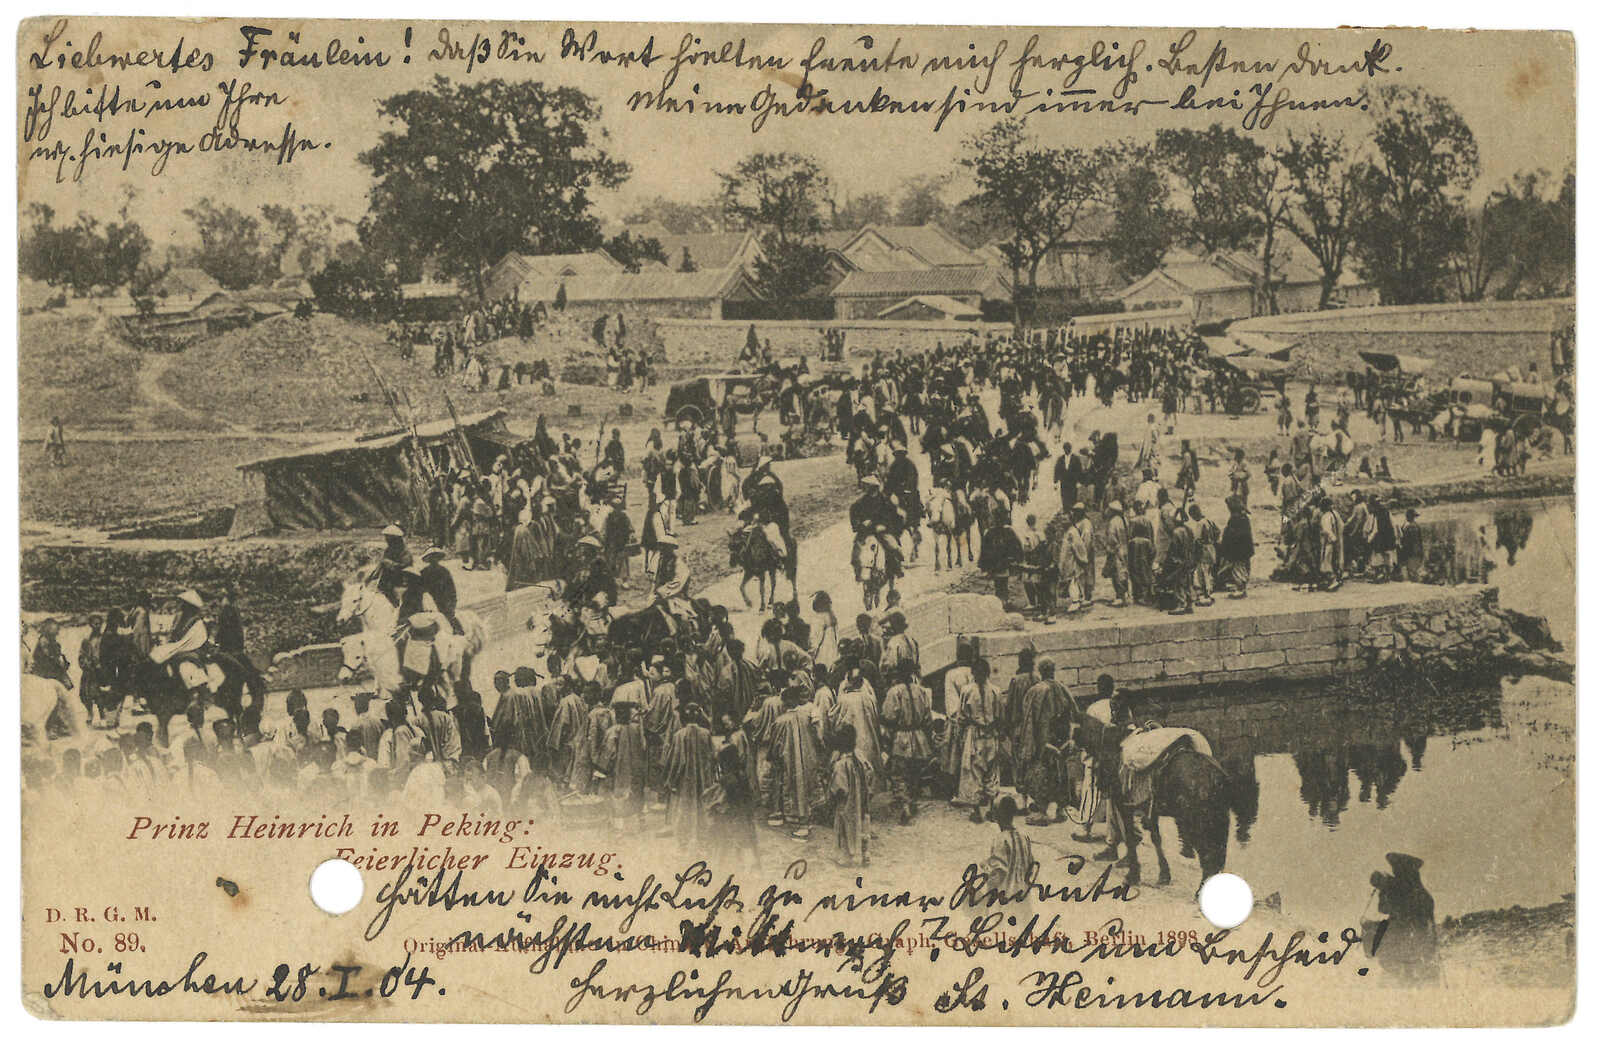 Liebwertes Fräulein! Daß Sie Wort hielten freute mich herzlich. Besten Dank.
Ich bitte um Ihre Meine Gedanken sind immer bei Ihnen.
hiesige Adresse.
Prinz Heinrich in Peking:
Feierlicher Einzug.
Hätten Sie nicht Lust zu einer Redoute
D. R. G. M.
No. 89.
nächsten Mittwoch? Bitte um Bescheid!
Graph. Gesellschaft, Berlin 1898
München 28.I.04. Herzlichen Gruß St. Heimann.